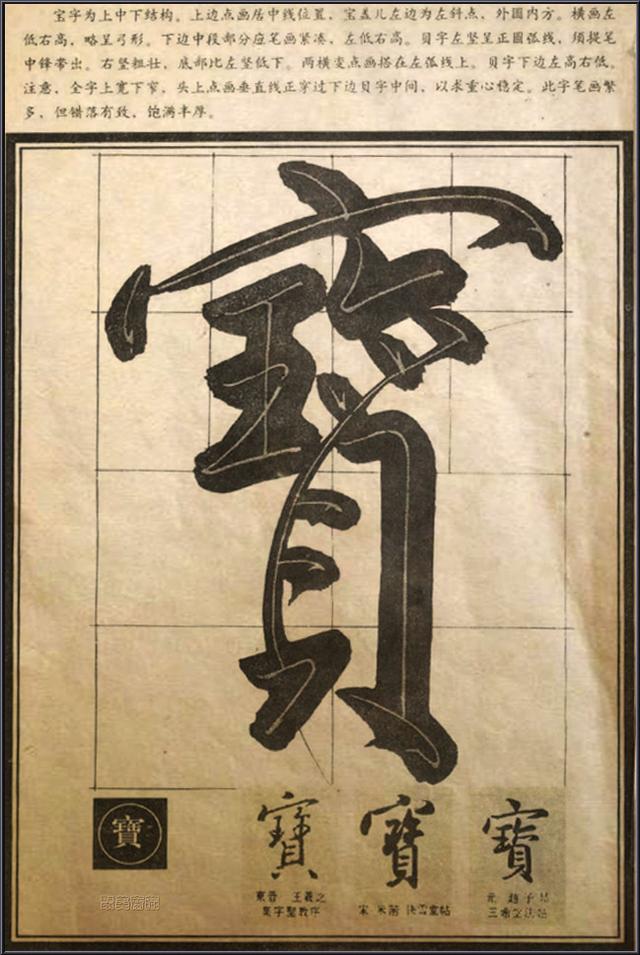 宝字为上中下结构。上边点画居中线位置，宝盖儿左边为左斜点，外圆内方。横画左
低右高，略呈弓形。下边中段部分应笔画紧凑，左低右高。贝字左竖呈正圆弧线，须提笔
中锋带出。右竖粗壮，底部比左竖低下。两横变点画搭在左弧线上。贝字下边左高右低。
注意，全字上宽下窄，头上点画垂直线正穿过下边贝字中间，以求重心稳定。此字笔画繁
多，但错落有致，饱满丰厚。
寶
寶
寶 寶 寶
東晋 王羲之 集字聖教序
宋 米芾 快雪堂帖
元 趙子昂 三希堂法帖